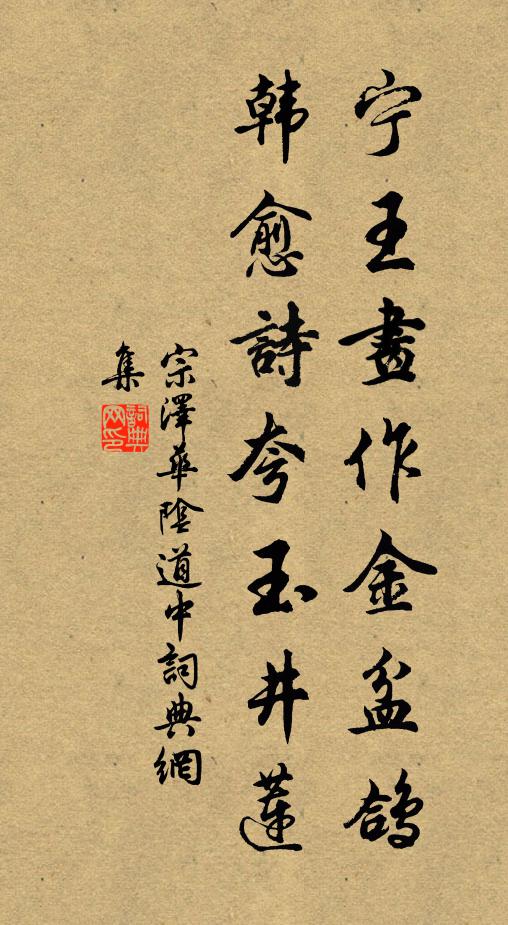 宁王畫作金盆鴿
韩愈詩夸玉井蓮
宗澤華陰道中詞典網
集
詞典网印